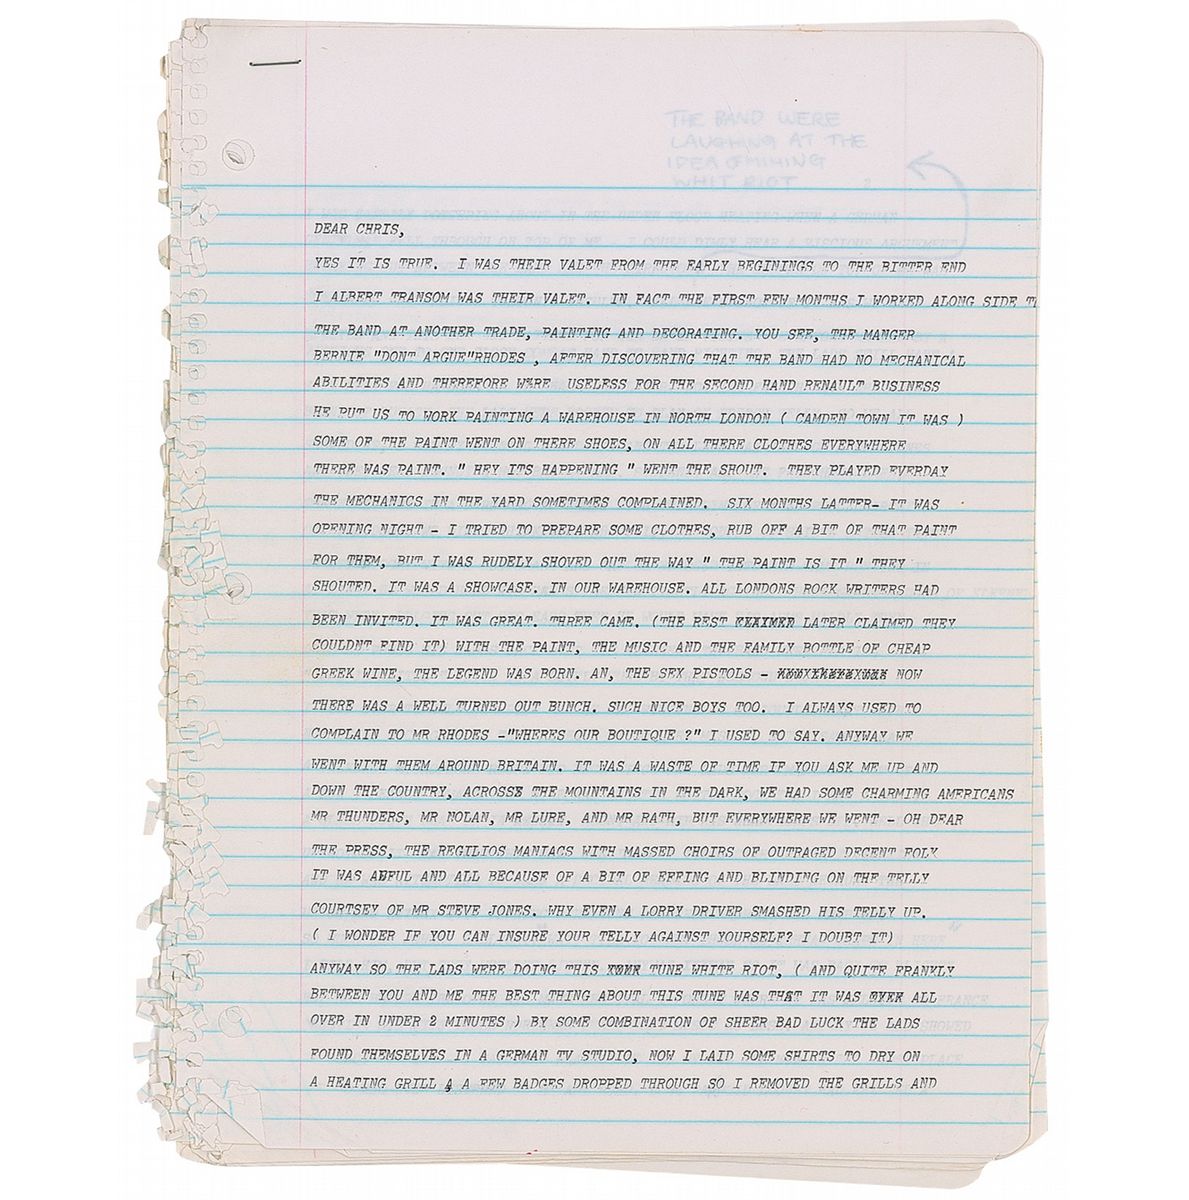 THE BAND WERE
LAUGHING AT THE
IDEA OF MIMING
WHIT RIOT
DEAR CHRIS,
YES IT IS TRUE. I WAS THEIR VALET FROM THE EARLY BEGININGS TO THE BITTER END
I ALBERT TRANSOM WAS THEIR VALET. IN FACT THE FIRST FEW MONTHS I WORKED ALONG SIDE
THE BAND AT ANOTHER TRADE, PAINTING AND DECORATING. YOU SEE, THE MANGER
BERNIE "DONT ARGUE"RHODES , AFTER DISCOVERING THAT THE BAND HAD NO MECHANICAL
ABILITIES AND THEREFORE W%RE USELESS FOR THE SECOND HAND RENAULT BUSINESS
HE PUT US TO WORK PAINTING A WAREHOUSE IN NORTH LONDON ( CAMDEN TOWN IT WAS )
SOME OF THE PAINT WENT ON THERE SHOES, ON ALL THERE CLOTHES EVERYWHERE
THERE WAS PAINT. " HEY ITS HAPPENING " WENT THE SHOUT. THEY PLAYED EVERDAY
THE MECHANICS IN THE YARD SOMETIMES COMPLAINED. SIX MONTHS LATTER- IT WAS
OPENING NIGHT - I TRIED TO PREPARE SOME CLOTHES, RUB OFF A BIT OF THAT PAINT
FOR THEM, BUT I WAS RUDELY SHOVED OUT THE WAY " THE PAINT IS IT " THEY
SHOUTED. IT WAS A SHOWCASE. IN OUR WAREHOUSE. ALL LONDONS ROCK WRITERS HAD
BEEN INVITED. IT WAS GREAT. THREE CAME. (THE REST LATER CLAIMED THEY
COULDNT FIND IT) WITH THE PAINT, THE MUSIC AND THE FAMILY BOTTLE OF CHEAP
GREEK WINE, THE LEGEND WAS BORN. AN, THE SEX PISTOLS - NOW
THERE WAS A WELL TURNED OUT BUNCH. SUCH NICE BOYS TOO. I ALWAYS USED TO
COMPLAIN TO MR RHODES -"WHERES OUR BOUTIQUE ?" I USED TO SAY. ANYWAY WE
WENT WITH THEM AROUND BRITAIN. IT WAS A WASTE OF TIME IF YOU ASK ME UP AND
DOWN THE COUNTRY, ACROSSE THE MOUNTAINS IN THE DARK, WE HAD SOME CHARMING AMERICANS
MR THUNDERS, MR NOLAN, MR LURE, AND MR RATH, BUT EVERYWHERE WE WENT - OH DEAR
THE PRESS, THE REGILIOS MANIACS WITH MASSED CHOIRS OF OUTRAGED DECENT FOLK
IT WAS AWFUL AND ALL BECAUSE OF A BIT OF EFFING AND BLINDING ON THE TELLY
COURTSEY OF MR STEVE JONES. WHY EVEN A LORRY DRIVER SMASHED HIS TELLY UP.
( I WONDER IF YOU CAN INSURE YOUR TELLY AGAINST YOURSELF? I DOUBT IT)
ANYWAY SO THE LADS WERE DOING THIS TUNE WHITE RIOT, ( AND QUITE FRANKLY
BETWEEN YOU AND ME THE BEST THING ABOUT THIS TUNE WAS THAT IT WAS ALL
OVER IN UNDER 2 MINUTES ) BY SOME COMBINATION OF SHEER BAD LUCK THE LADS
FOUND THEMSELVES IN A GERMAN TV STUDIO, NOW I LAID SOME SHIRTS TO DRY ON
A HEATING GRILL A FEW BADGES DROPPED THROUGH SO I REMOVED THE GRILLS AND